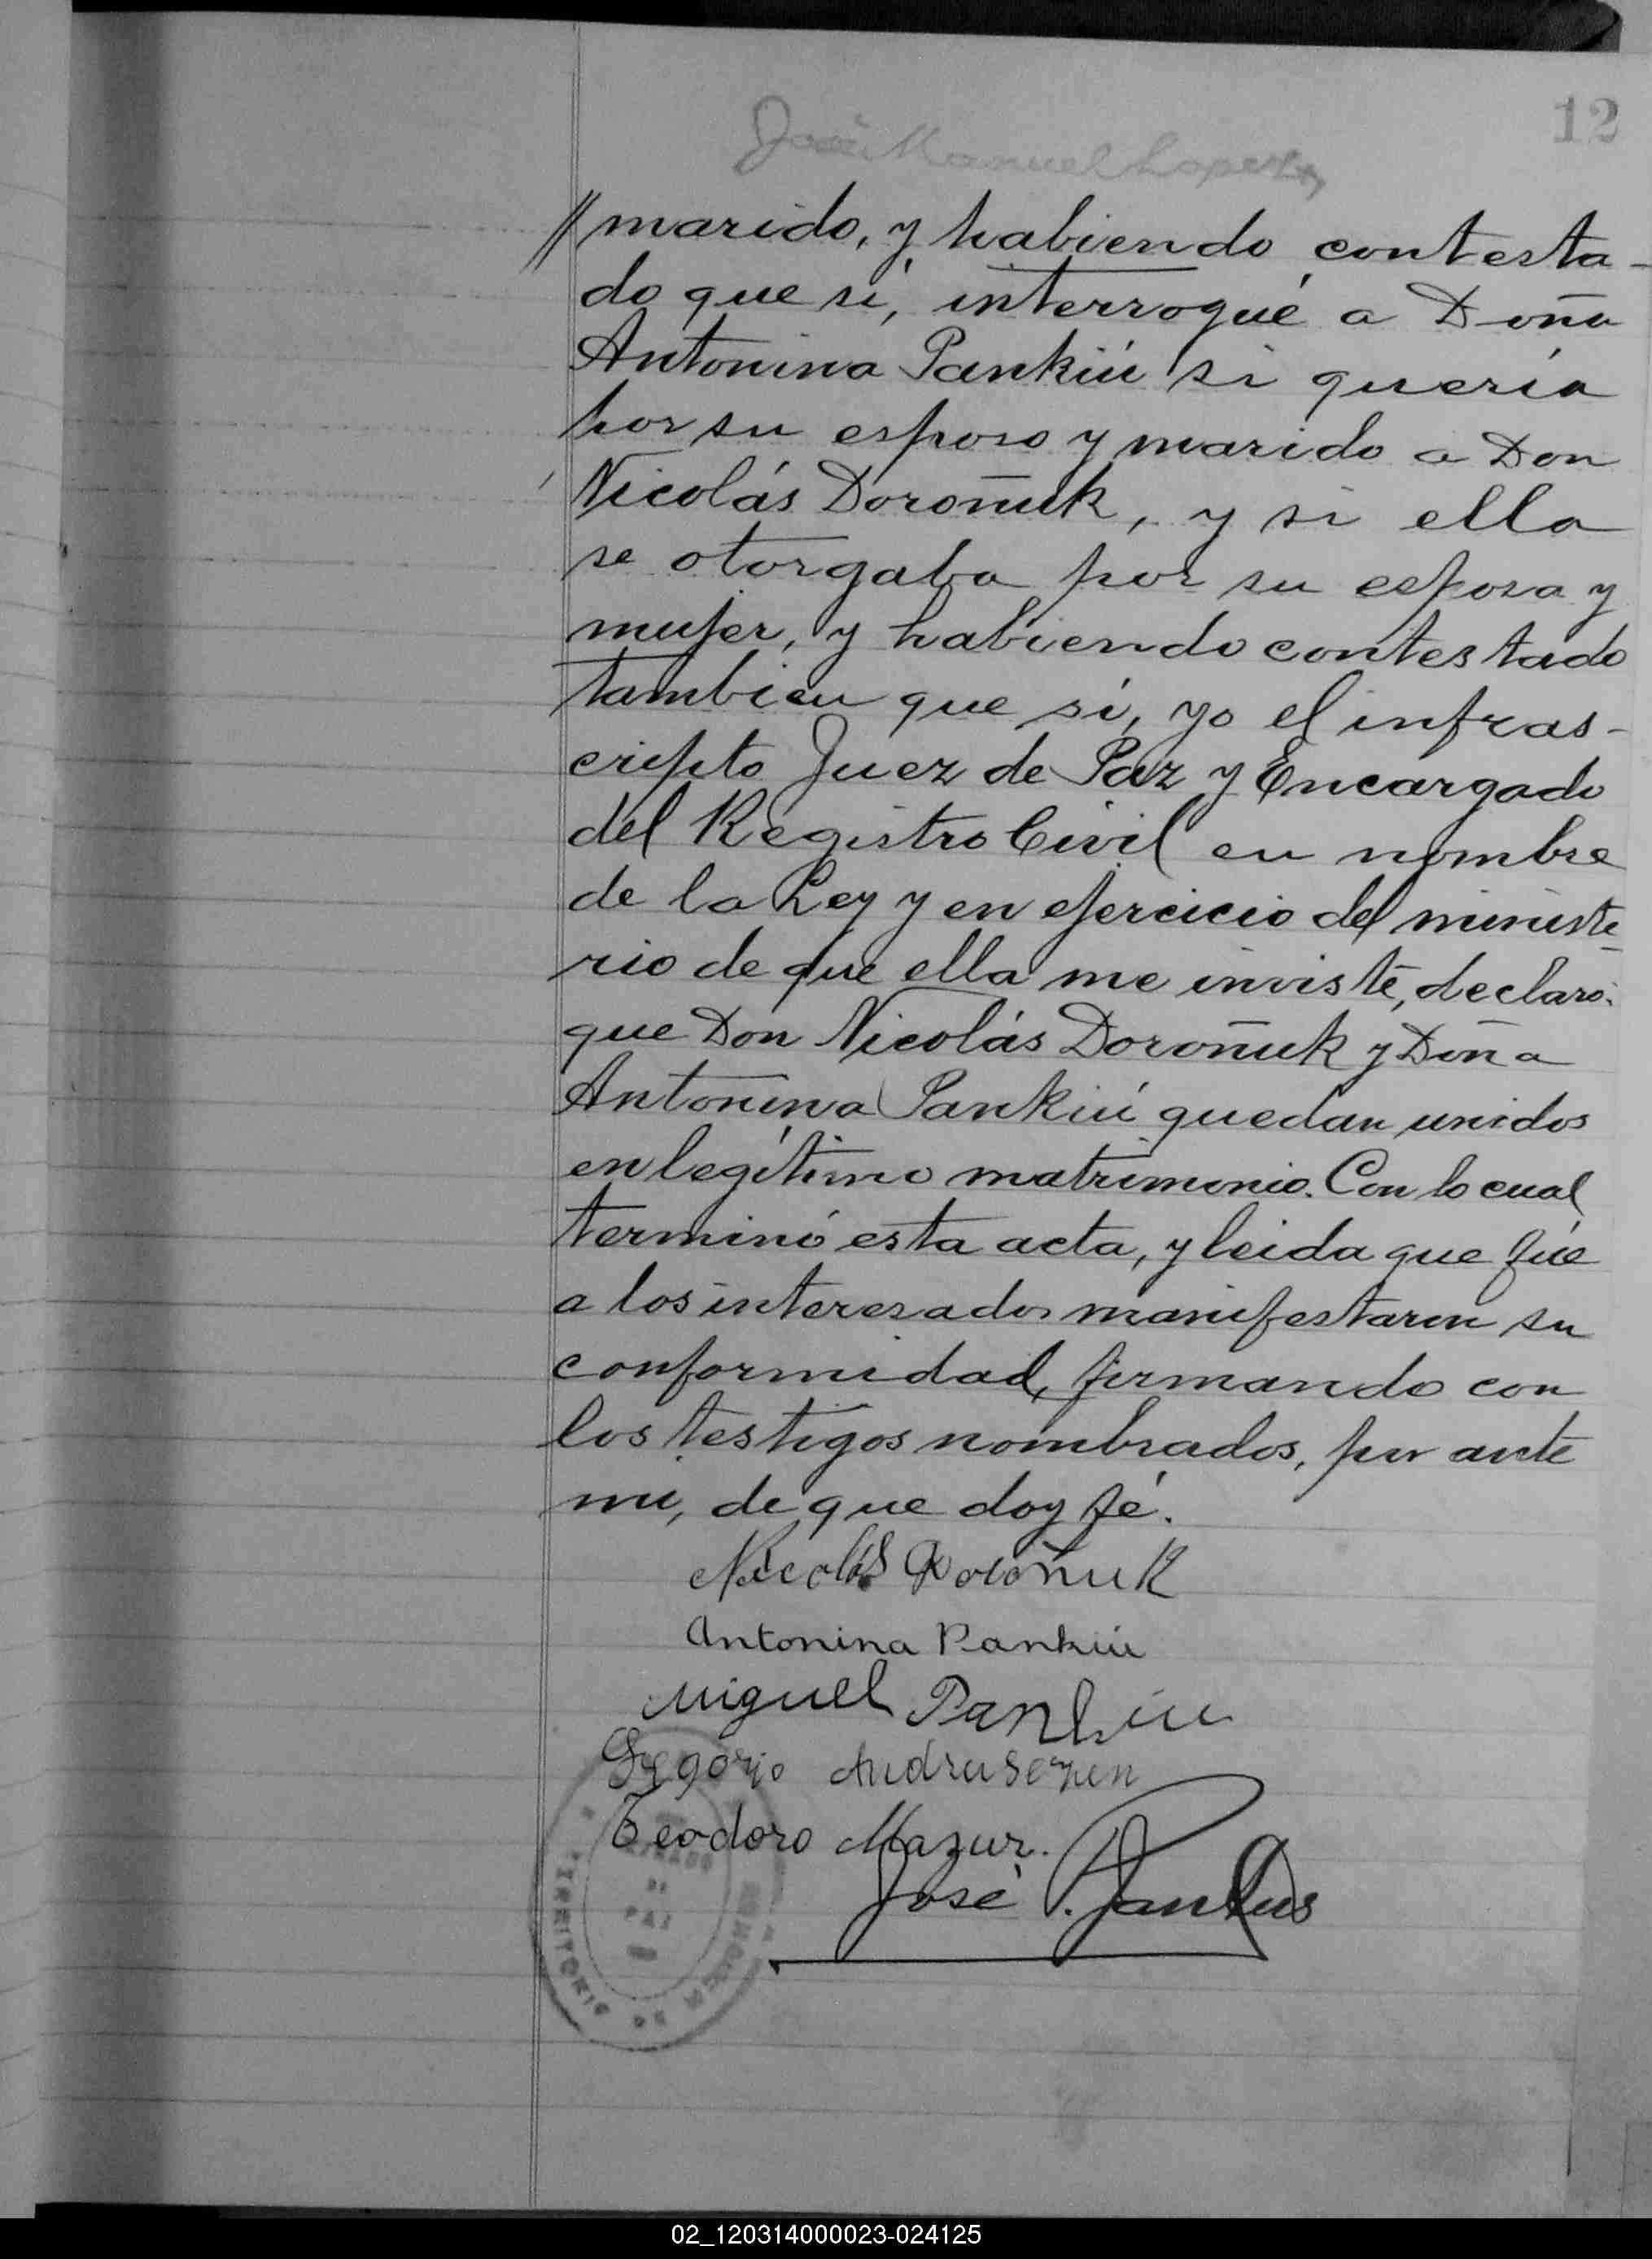 12
José Manuel Lopez
// marido, y habiendo contesta-
do que sí, interrogué a Doña
Antonina Pankiú si quería
por su esposo y marido a Don
Nicolás Doroñuk, y si ella
se otorgaba por su esposa y
mujer, y habiendo contestado
tambien que sí, yo el infras-
cripto Juez de Paz y Encargado
del Registro Civil en nombre
de la Ley y en ejercicio del ministe-
rio de que ella me inviste, declaro:
que Don Nicolás Doroñuk y Doña
Antonina Pankiú quedan unidos
en legítimo matrimonio. Con lo cual
terminó esta acta, y leida que fué
a los interesados manifestaron su
conformidad, firmando con
los testigos nombrados, por ante
mi, de que doy fé.
Nicolás Doroñuk
Antonina Pankiú
Miguel Pankiu
Gregorio
Teodoro Mazur.
José
JUZGADO
DE
PAZ
TERRITORIO DE
02_120314000023-024125